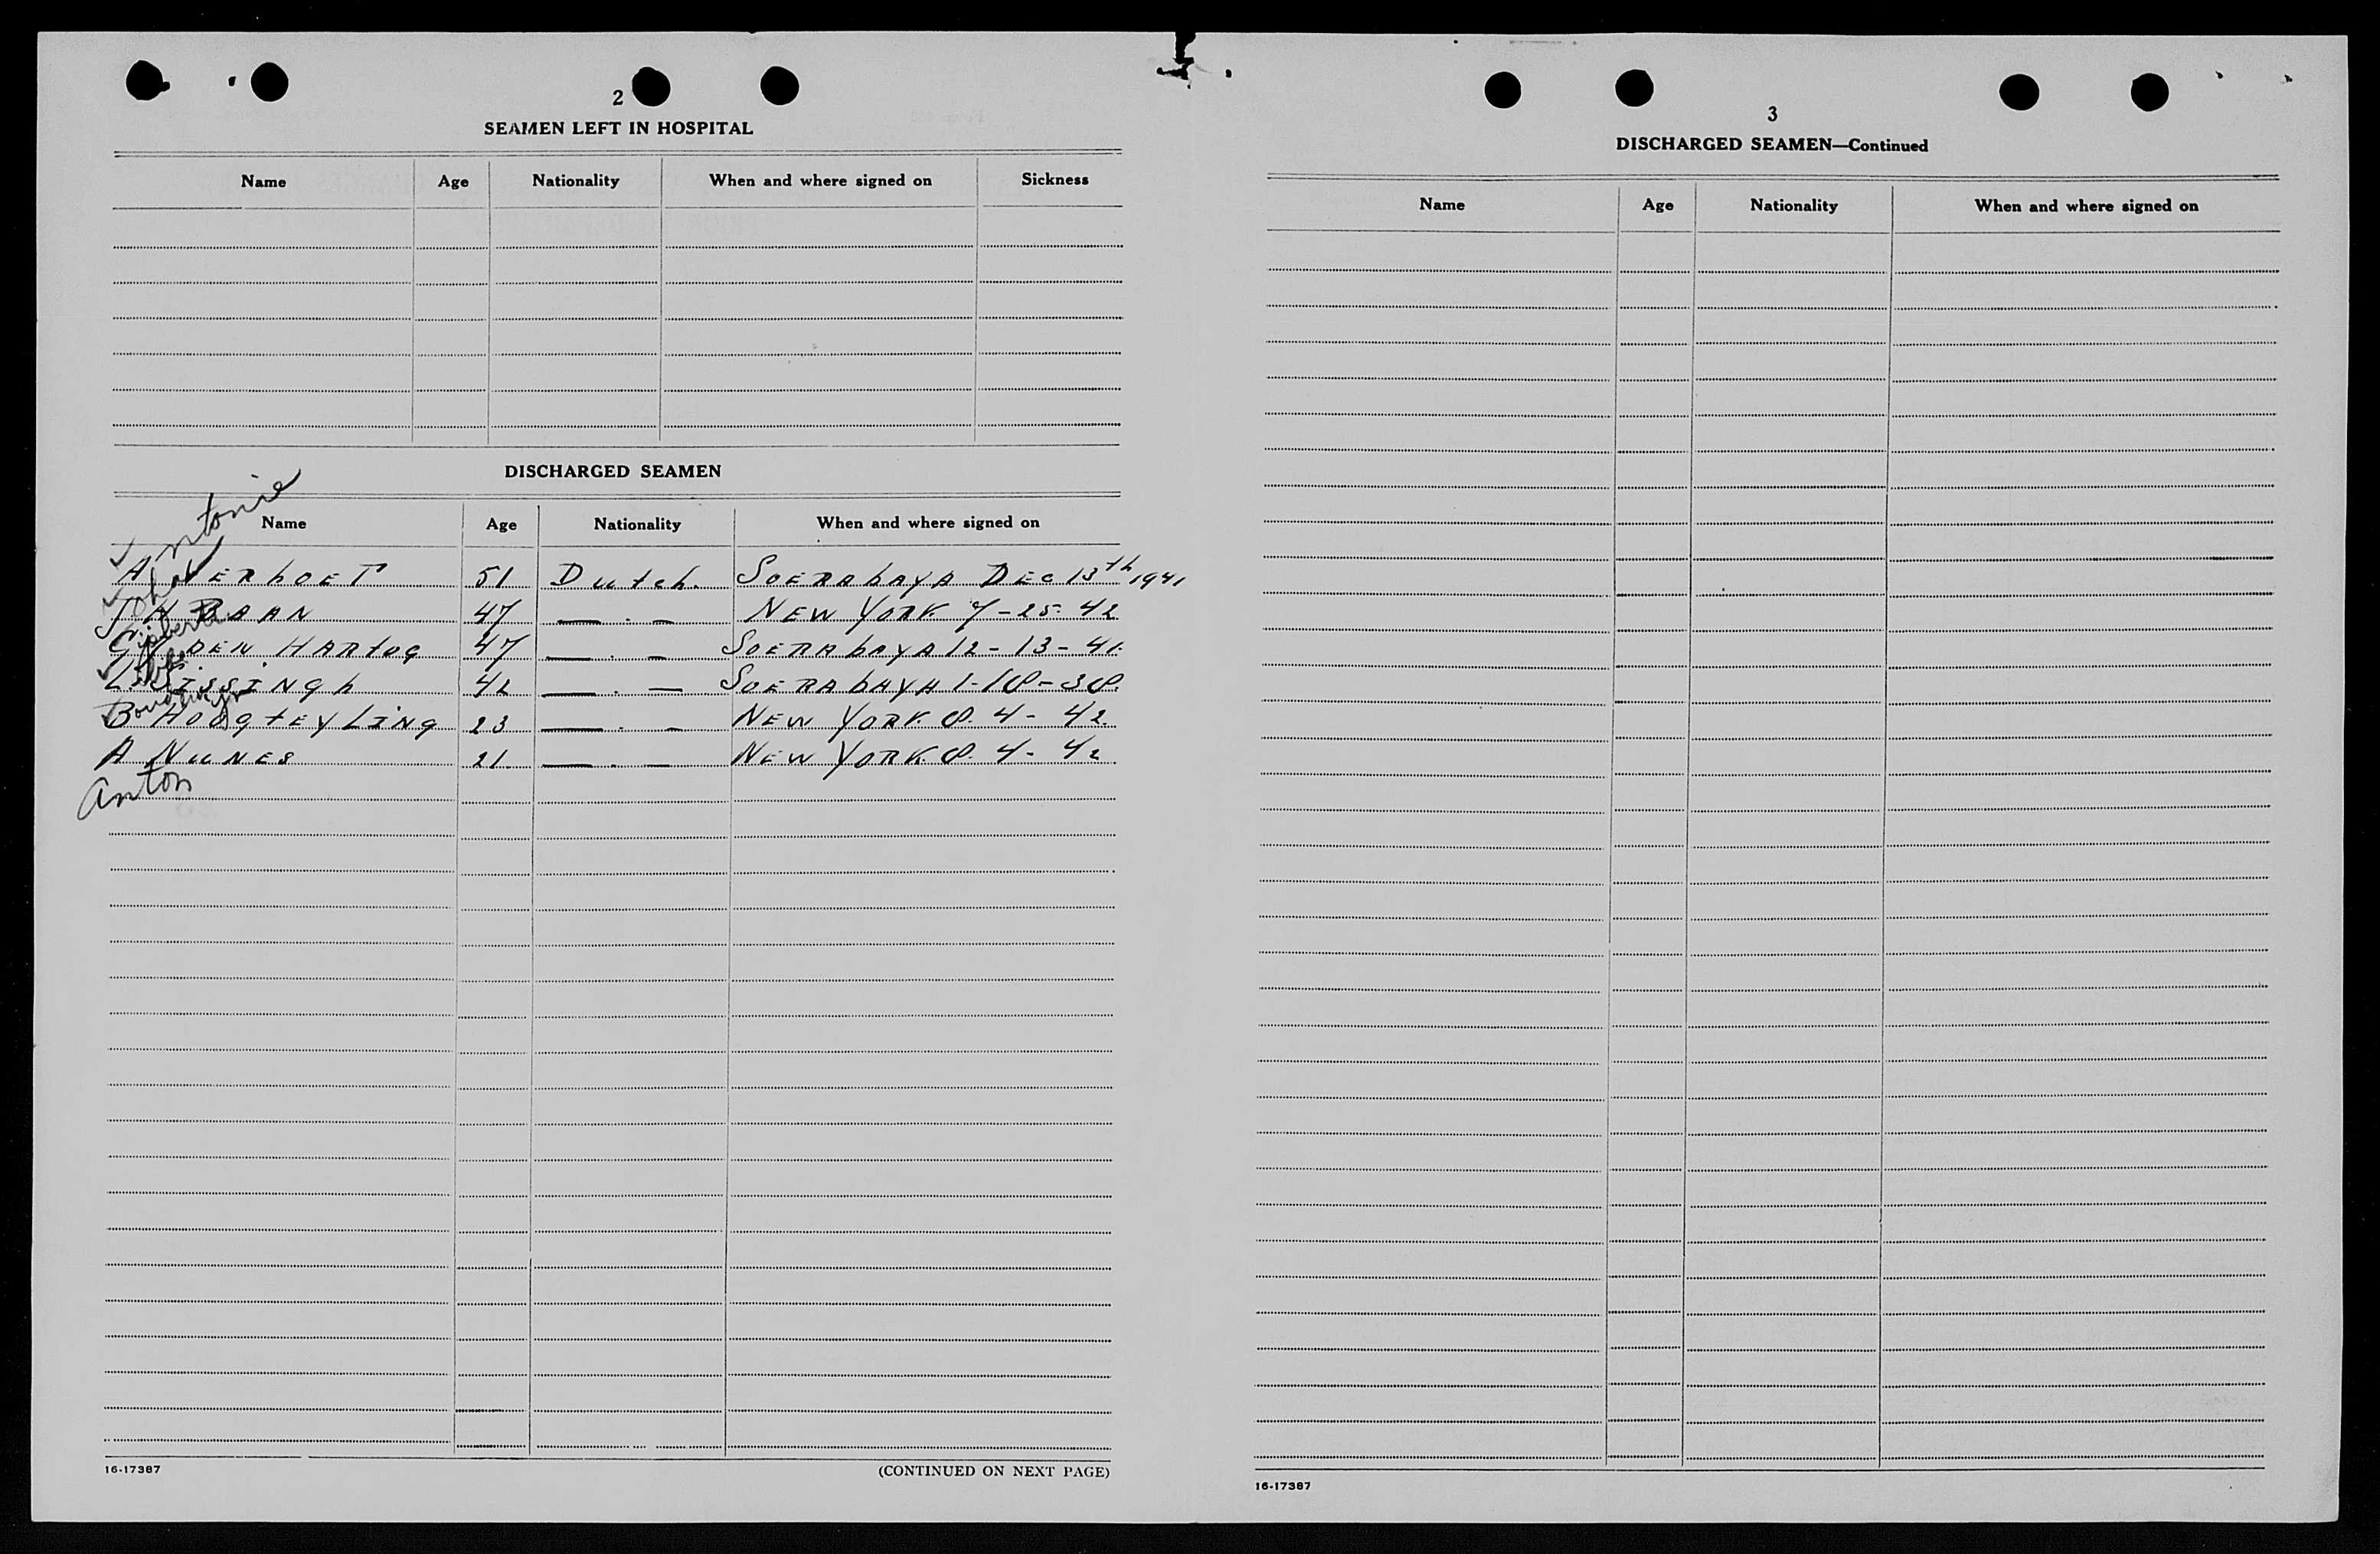 2
SEAMEN LEFT IN HOSPITAL
Name Age Nationality When and where signed on Sickness
DISCHARGED SEAMEN
Name Age Nationality When and where signed on
Antonie
A VERhOET 51 Dutch. SOERABAYA DEC 13th 1941
Johan
BAAN 47 — . — NEW YORK 7-25-42
Gijsbert
G DEN HARtOG 47 — . — SOERABAYA 12-13-41
L. LISSINGh 42 — . — SOERABAYA 1-18-38
Boudewijn
B HOOGtEYLING 23 — . — NEW YORK 8. 4- 42
A NUNES 21. — . — NEW YORK 8. 4- 42
Anton
16-17387
(CONTINUED ON NEXT PAGE)
3
DISCHARGED SEAMEN—Continued
Name Age Nationality When and where signed on
16-17387